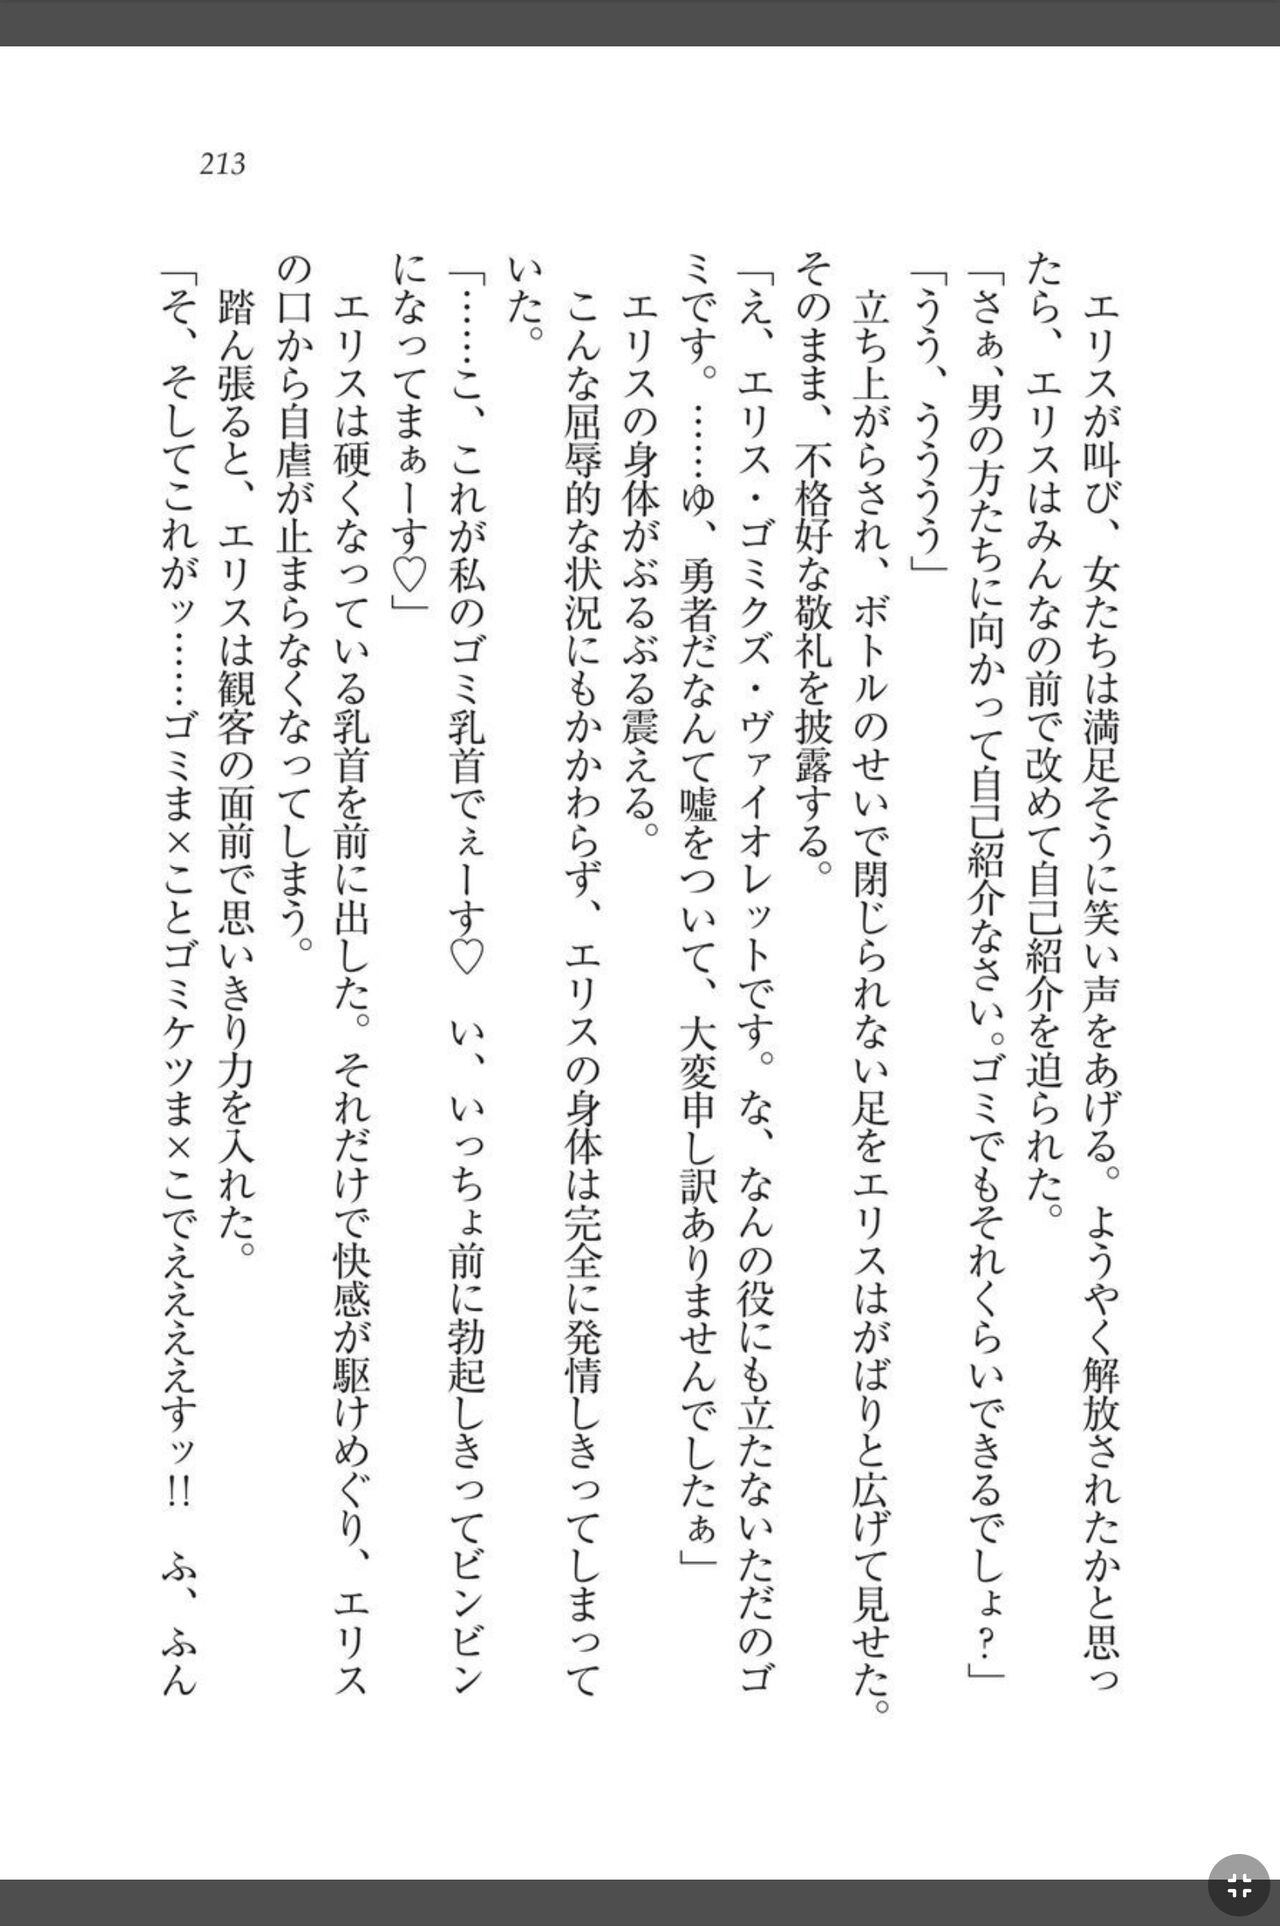 213
　エリスが叫び、女たちは満足そうに笑い声をあげる。ようやく解放されたかと思っ
たら、エリスはみんなの前で改めて自己紹介を迫られた。
「さぁ、男の方たちに向かって自己紹介なさい。ゴミでもそれくらいできるでしょ？」
「うう、うううう」
　立ち上がらされ、ボトルのせいで閉じられない足をエリスはがばりと広げて見せた。
そのまま、不格好な敬礼を披露する。
「え、エリス・ゴミクズ・ヴァイオレットです。な、なんの役にも立たないただのゴ
ミです。……ゆ、勇者だなんて嘘をついて、大変申し訳ありませんでしたぁ」
　エリスの身体がぶるぶる震える。
　こんな屈辱的な状況にもかかわらず、エリスの身体は完全に発情しきってしまって
いた。
「……こ、これが私のゴミ乳首でぇーす♡　い、いっちょ前に勃起しきってビンビン
になってまぁーす♡」
　エリスは硬くなっている乳首を前に出した。それだけで快感が駆けめぐり、エリス
の口から自虐が止まらなくなってしまう。
　踏ん張ると、エリスは観客の面前で思いきり力を入れた。
「そ、そしてこれがッ……ゴミま×ことゴミケツま×こでええええすッ!!　ふ、ふん